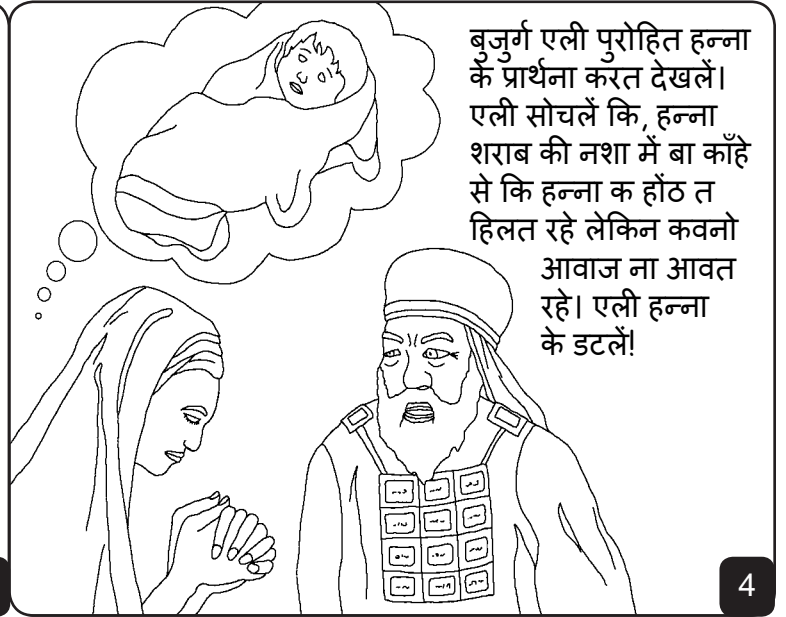 बुजुर्ग एली पुरोहित हन्ना
के प्रार्थना करत देखलें।
एली सोचलें कि, हन्ना
शराब की नशा में बा काँहे
से कि हन्ना क होंठ त
हिलत रहे लेकिन कवनो
आवाज ना आवत
रहे। एली हन्ना
के डटलें!
4